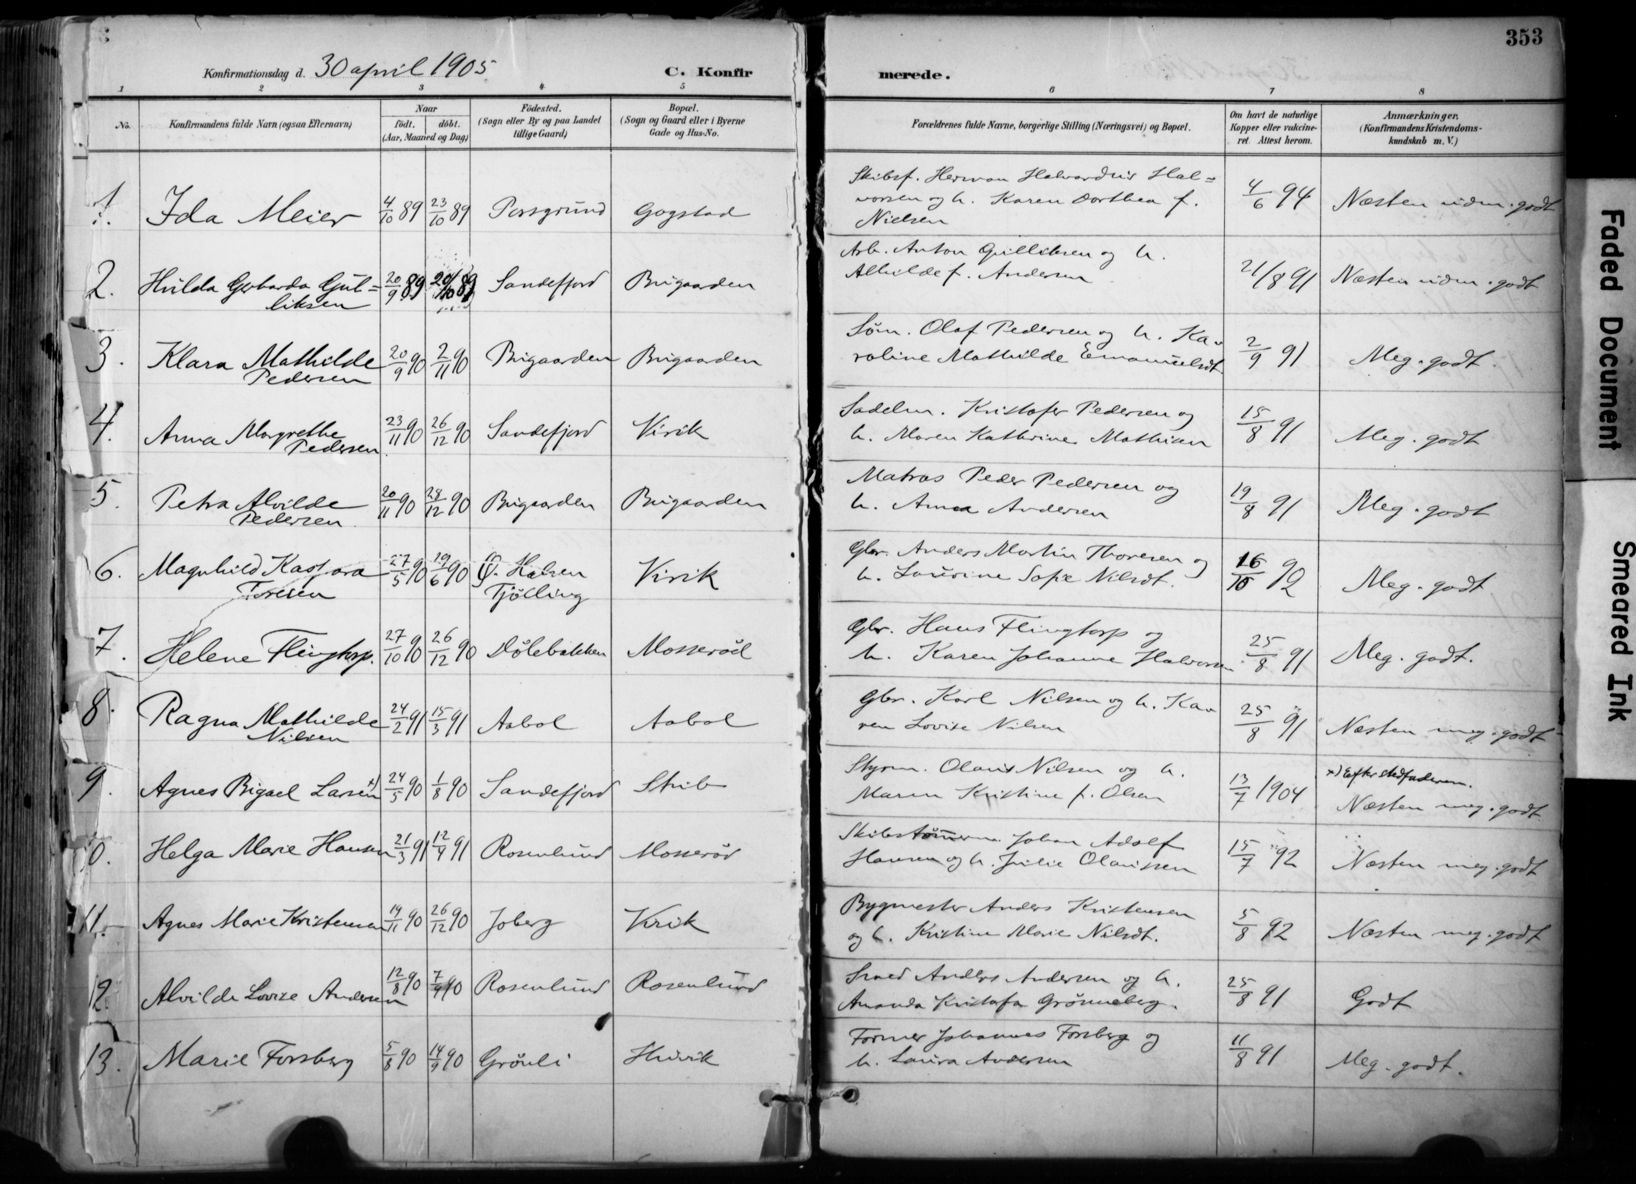 353
Konfirmationsdag d. 30 april 1905
C. Konfirmerede.
1 2 3 4 5 6 7 8
No.
Konfirmandens fulde Navn (ogsaa Efternavn)
Naar
født. døbt.
(Aar, Maaned og Dag)
Fødested.
(Sogn eller By og paa Landet
tillige Gaard)
Bopæl.
(Sogn og Gaard eller i Byerne
Gade og Hus-No.
Forældrenes fulde Navne, borgerlige Stilling (Næringsvei) og Bopæl.
Om havt de naturlige
Kopper eller vakcine-
ret. Attest herom.
Anmærkninger.
(Konfirmandens Kristendoms-
kundskab m. V.)
1. Ida Meier 4/10 89 23/10 89 Porsgrund Gogstad
Skibsf. Herman Halvordsis Hal=
vorsen og h. Karen Dorthea f.
Nielsen
4/6 94 Næsten udm. godt
2. Hilda Gerharda Gul=
liksen
20/9 89 20/10 89 Sandefjord Bugaarden
Arb. Anton Gulliksen og h.
Alhilde f. Andersen
21/8 91 Næsten udm. godt
3. Klara Mathilde
Pedersen
20/9 90 2/11 90 Bugaarden Bugaarden
Søm. Olaf Pedersen og h. Ka-
roline Mathilde Emanuelsdt.
2/9 91 Meg. godt.
4. Anna Margrethe
Pedersen
23/11 90 26/12 90 Sandefjord Virik
Sadelm. Kristofer Pedersen og
h. Maren Kathrine Mathisen
15/8 91 Meg. godt
5. Petra Alvilde
Pedersen
20/11 90 28/12 90 Bugaarden Bugaarden
Matros Peder Pedersen og
h. Anna Andersen
19/8 91 Meg. godt
6. Magnhild Kaspara
Toresen
27/5 90 29/6 90 Halsen
Tjølling
Virik
Gbr. Anders Martin Thoresen og
h. Laurine Sofie Nilsdt.
16/10 92 Meg. godt
7. Helene Flingtorp.
27/10 90 26/12 90 Dølebakken Mosserød
Gbr. Hans Flingtorp og
h. Karen Johanne Halvorsen
25/8 91 Meg. godt.
8. Ragna Mathilde
Nilsen
24/2 91 15/3 91 Aabol Aabol
Gbr. Karl Nilsen og h. Ka-
ren Lovise Nilsen
25/8 91 Næsten meg. godt
9. Agnes Bigael Larsen x)
24/5 90 1/8 90 Sandefjord Stub
Styrm. Olaus Nilsen og h.
Maren Kristine f. Olsen
13/7 1904 x) Efter stedfaderen.
Næsten meg. godt
0. Helga Marie Hansen
21/3 91 12/4 91 Rosenlund Mosserød
Skibstømerm. Johan Adolf
Hansen og h. Julie Olaussen
15/7 92 Næsten meg. godt
11. Agnes Marie Kristensen
19/11 90 26/12 90 Joberg Virik
Bygmester Anders Kristensen
og h. Kristine Marie Nilsdt.
5/8 92 Næsten meg. godt
12. Alvilde Lovise Andersen
12/8 90 7/9 90 Rosenlund Rosenlund
Smed Anders Andersen og h.
Amanda Kristofa Grønneberg.
25/8 91 Godt
13. Marie Forsberg
5/8 90 14/9 90 Grønli Huvik
Former Johannes Forsberg og
h. Laura Andersen
11/8 91 Meg. godt.
Faded Document
Smeared Ink